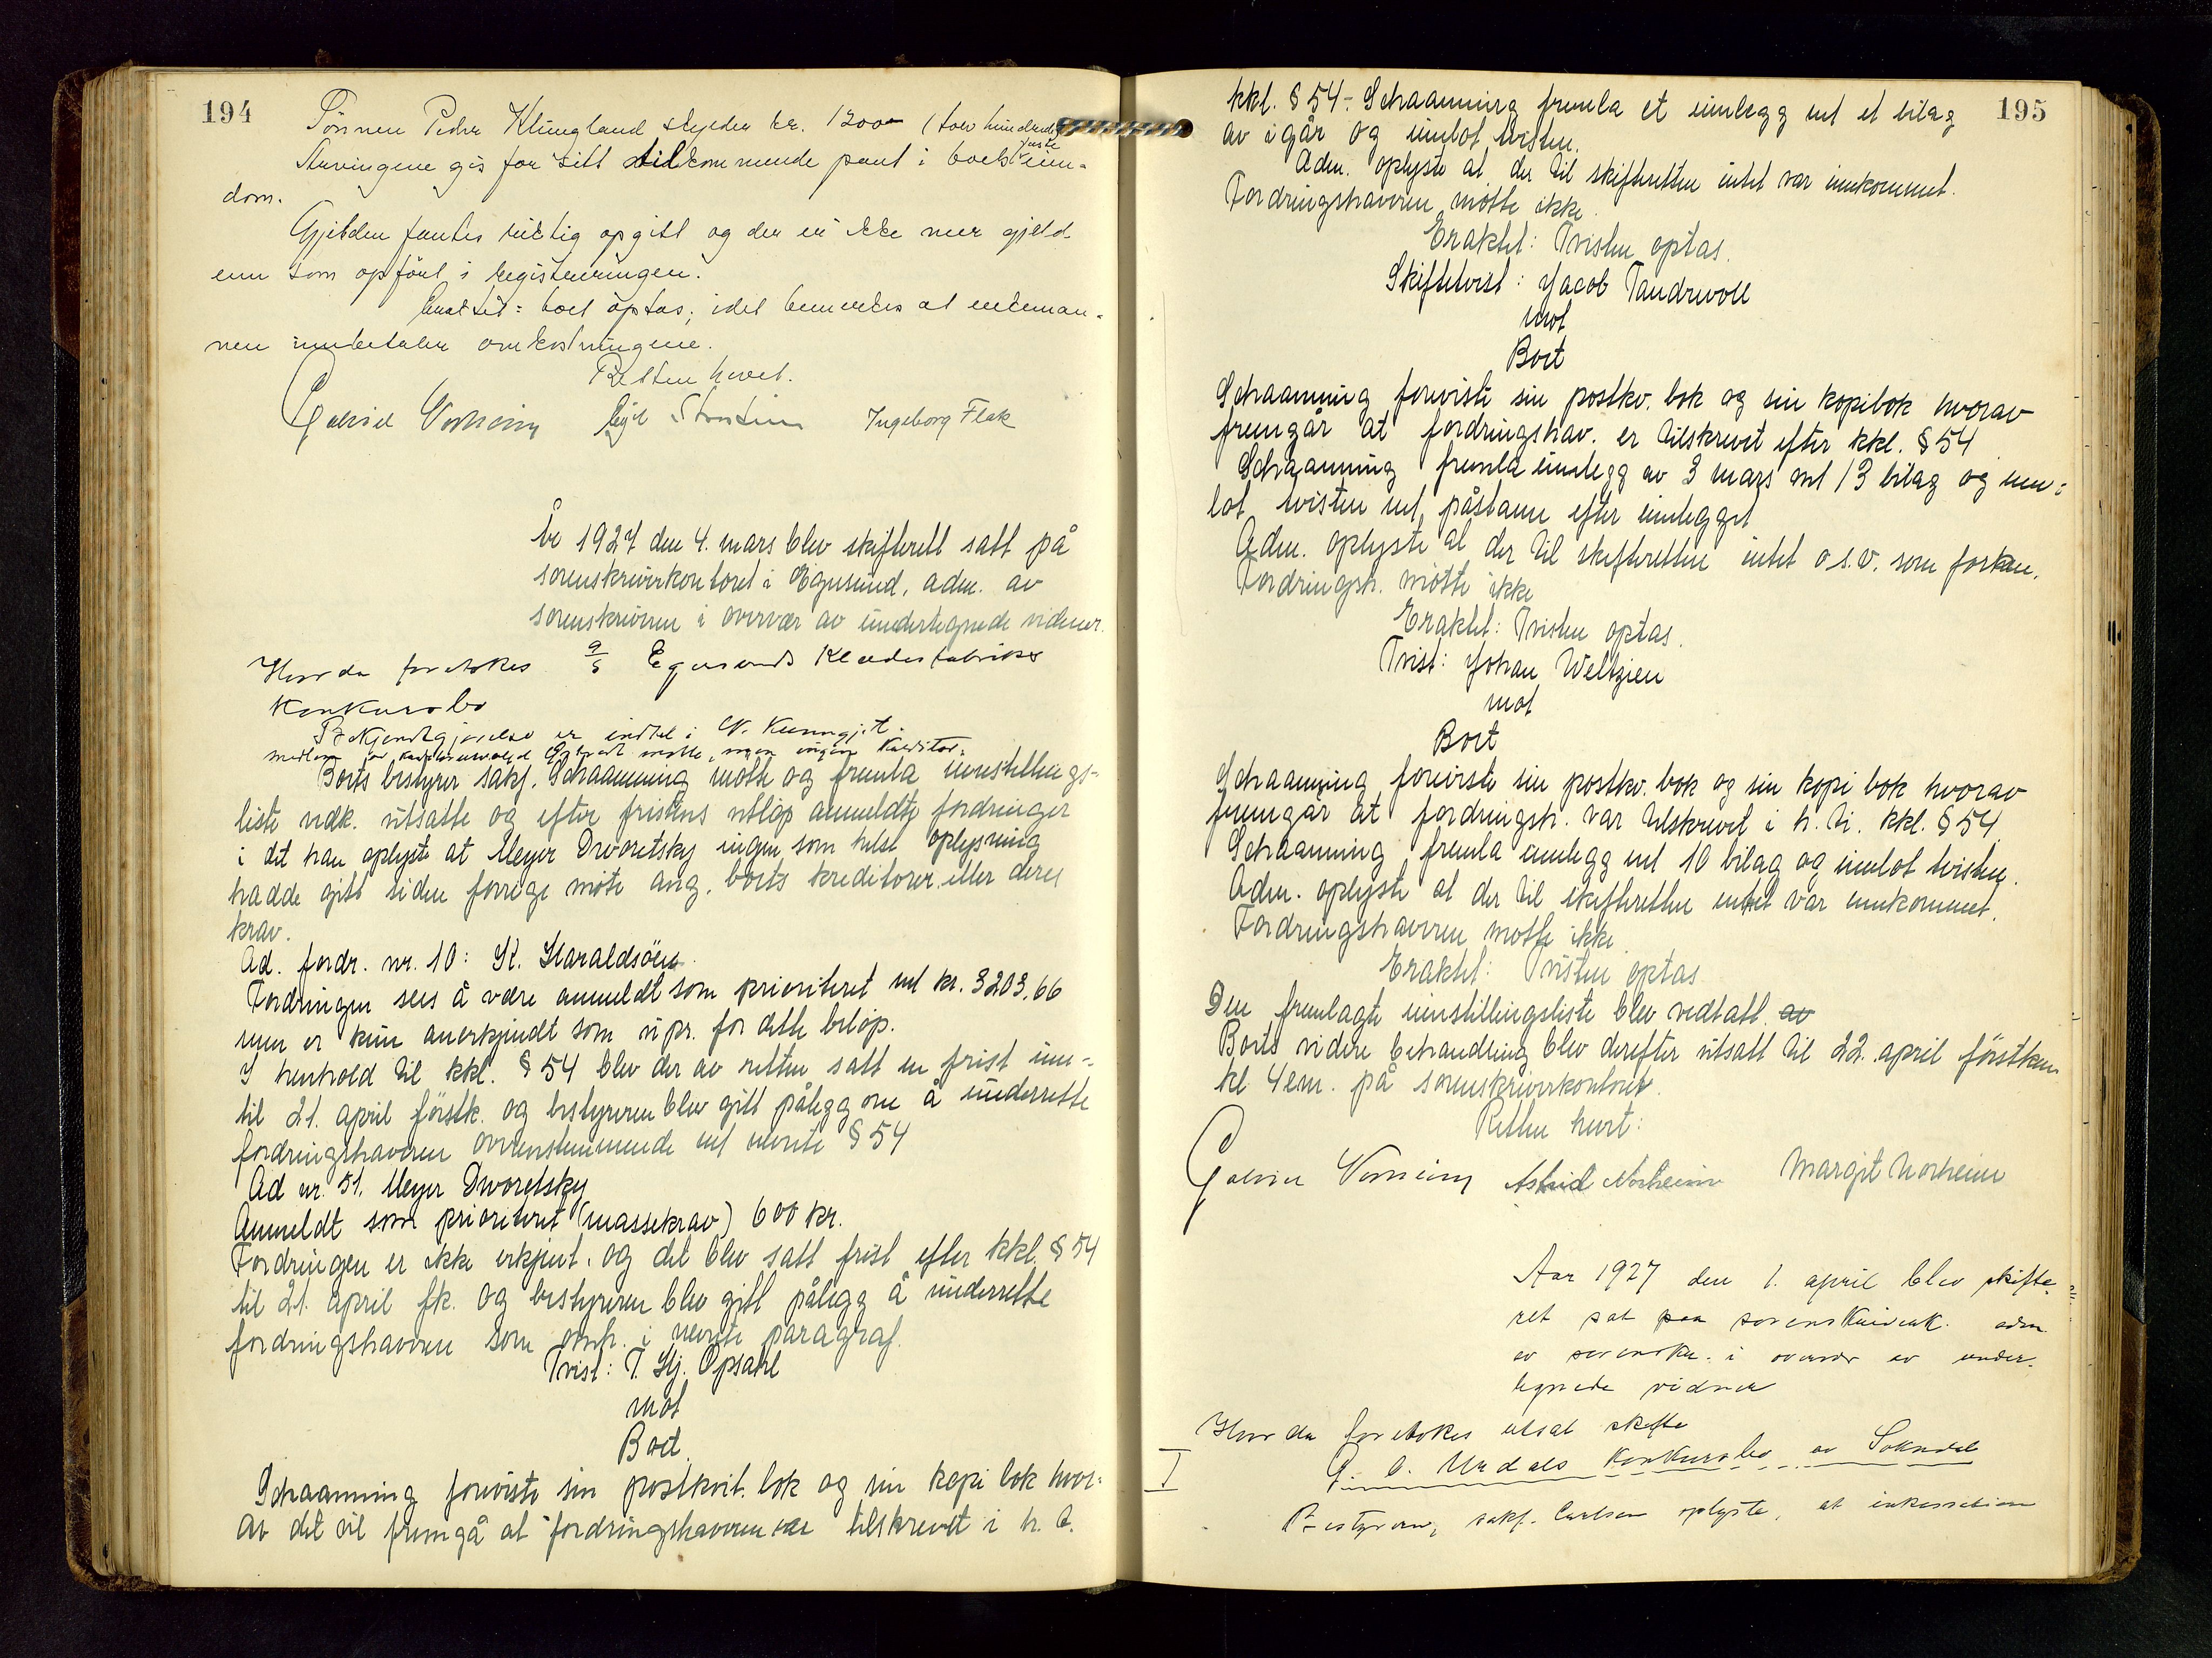 194
Sönnen Peder Klungland skylder kr. 1200 (tolv hundrede)
Arvingene gis for sitt tilkommende pant i boets faste eien-
dom.
Gjelden fantes riktig opgitt og der er ikke mer gjeld
enn som opfört i registreringen.
Eraktet: boet optas; idet bemerkes at enkeman-
nen innbetaler omkostningene.
Retten hevet.
Gabriel Ingeborg Flak
År 1927 den 4. mars blev skifterett satt på
sorenskriverkontoret i Egersund, adm. av
sorenskriveren i overvær av undertegnede vidner.
Hvor da foretokes a/s Egersunds Klædesfabriks
Konkursbo
Bekjendtgjörelse er indtat i N. Kunngj.t.
medlem av kreditorutvalget møtte, men ingen kreditor.
Boets bestyrer sakf. Schaanning møtte og fremla innstillings-
liste vedk. utsatte og efter fristens utlöp anmeldte fordringer
i det han oplyste at Meyer Dworetsky ingen som helst oplysning
hadde gitt siden forrige möte ang. boets kreditorer eller deres
krav.
Ad. fordr. nr. 10: K. Haraldsöen.
Fordringen sees å være anmeldt som prioritert med kr. 3203,66
men er kun anerkjendt som upr. for dette belöp.
I henhold til kkl. § 54 blev der av retten satt en frist inn-
til 21. april förstk. og bestyreren blev gitt pålegg om å underrette
fordringshaveren overenstemmende med nevnte § 54
Ad nr. 51. Meyer Dworetsky
Anmeldt som prioritert (massekrav) 600 kr.
Fordringen er ikke erkjent. og det blev satt frist efter kkl. § 54
til 21. april fk. og bestyreren blev gitt pålegg å underrette
fordringshaveren som omh. i nevnte paragraf.
Tvist: T. Hj. Opsahl
mot
Boet.
Schaanning foreviste sin postkvit. bok og sin kopi bok hvor-
av det vil fremgå at fordringshaveren var tilskrevet i h. t.
195
kkl. § 54. Schaanning fremla et innlegg med et bilag
av igår og innlot tvisten.
Adm. oplyste at der til skifteretten intet var innkommet.
Fordringshaveren mötte ikke.
Eraktet: Tvisten optas.
Skiftetvist: Jacob Tandrevoll
mot
Boet
Schaanning foreviste sin postkv. bok og sin kopibok hvorav
fremgår at fordringshav. er tilskrevet efter kkl. § 54
Schaanning fremla innlegg av 3 mars med 13 bilag og inn-
lot tvisten med påstann efter innlegget
Adm. oplyste at der til skifteretten intet o.s.v. som forran.
Fordringsh. mötte ikke
Eraktet: Tvisten optas.
Tvist: Johan Weltzien
mot
Boet
Schaanning foreviste sin postkv. bok og sin kopi bok hvorav
fremgår at fordringsh. var tilskrevet i h. t. kkl. § 54
Schaanning fremla innlegg med 10 bilag og innlot tvisten.
Adm. oplyste at der til skifteretten intet var innkommet.
Fordringshaveren mötte ikke.
Eraktet: Tvisten optas
Den fremlagte innstillingsliste blev vedtatt. av
Boets videre behandling blev derefter utsatt til 22. april förstkm
kl 4 em. på sorenskriverkontoret.
Retten hevet:
Gabriel Astrid Norheim Margit Norheim
Aar 1927 den 1. april blev skifte-
ret sat paa sorenskriverk. adm
av sorenskr. i overvær av under-
tegnede vidner
Hvor da foretokes utsat skifte
I
Urdals konkursbo av Sokndal
Bestyreren, sakf. Carlsen oplyste, at inkassation